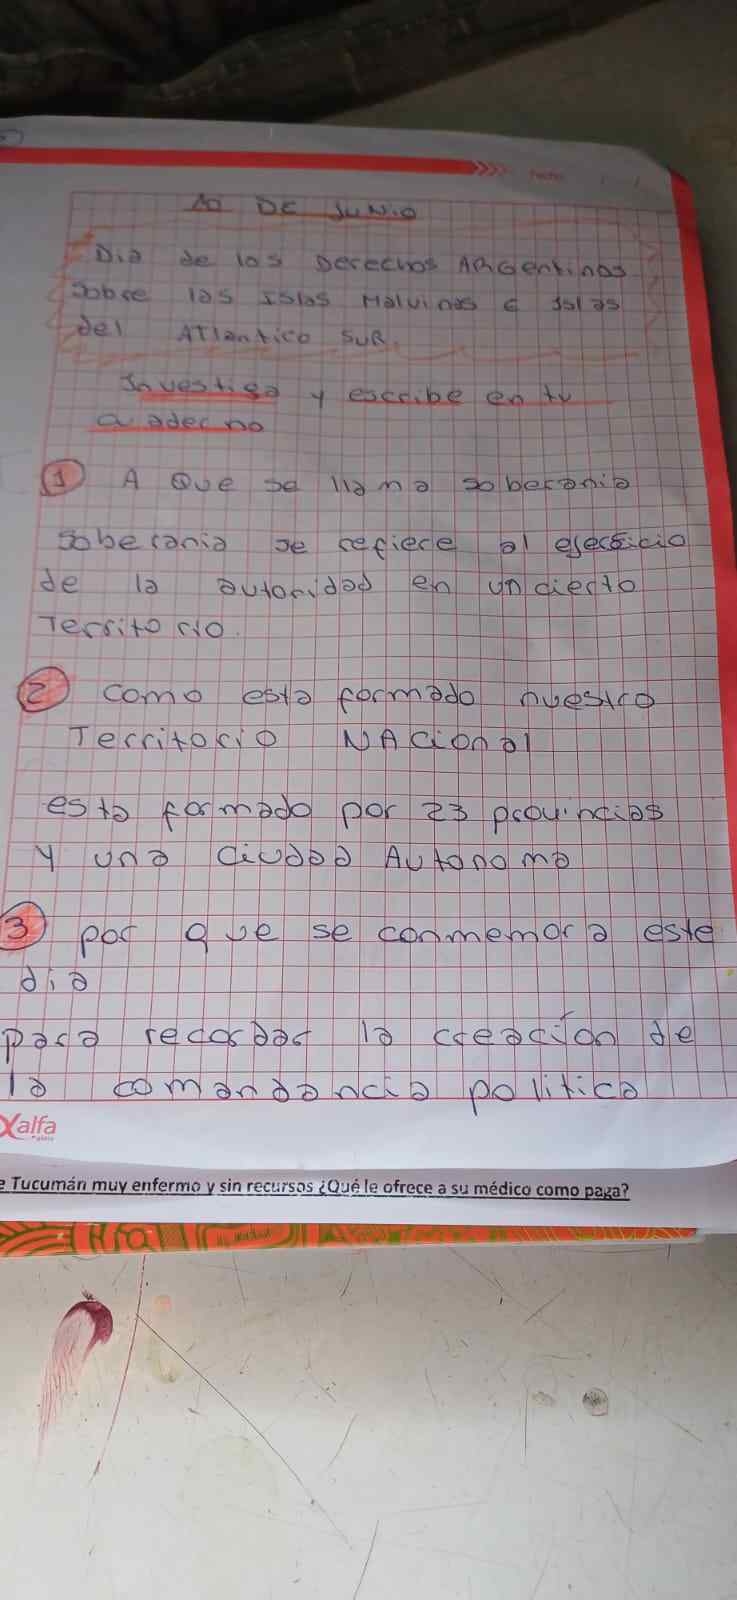 10 DE JUNIO
Dia de los Derechos ARGentinos
Sobre las Islas Malvinas e Islas
del ATlantico SUR.
Investiga y escribe en tu
cuaderno
1 A Que se llama soberania
Soberania se refiere al ejercicio
de la autoridad en un cierto
Territorio.
2 como esta formado nuestro
Territorio NACional
esta formado por 23 provincias
Y una ciudad Autonoma
3 por que se conmemora este
dia
para recordar la creación de
la comandancia politica
Fecha: / /
alfa
e Tucumán muy enfermo y sin recursos ¿Qué le ofrece a su médico como paga?